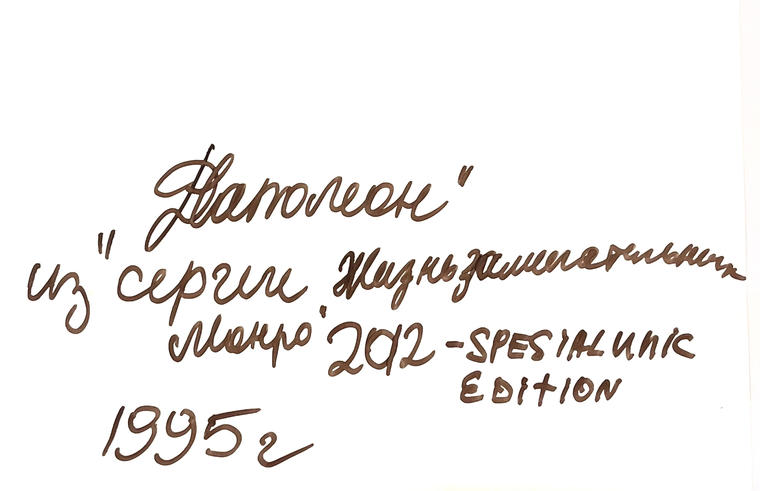 Наполеон"
из "серии Жизнь замечательных
Монро" 2012 - SPESIAL UNIC
EDITION
1995 г